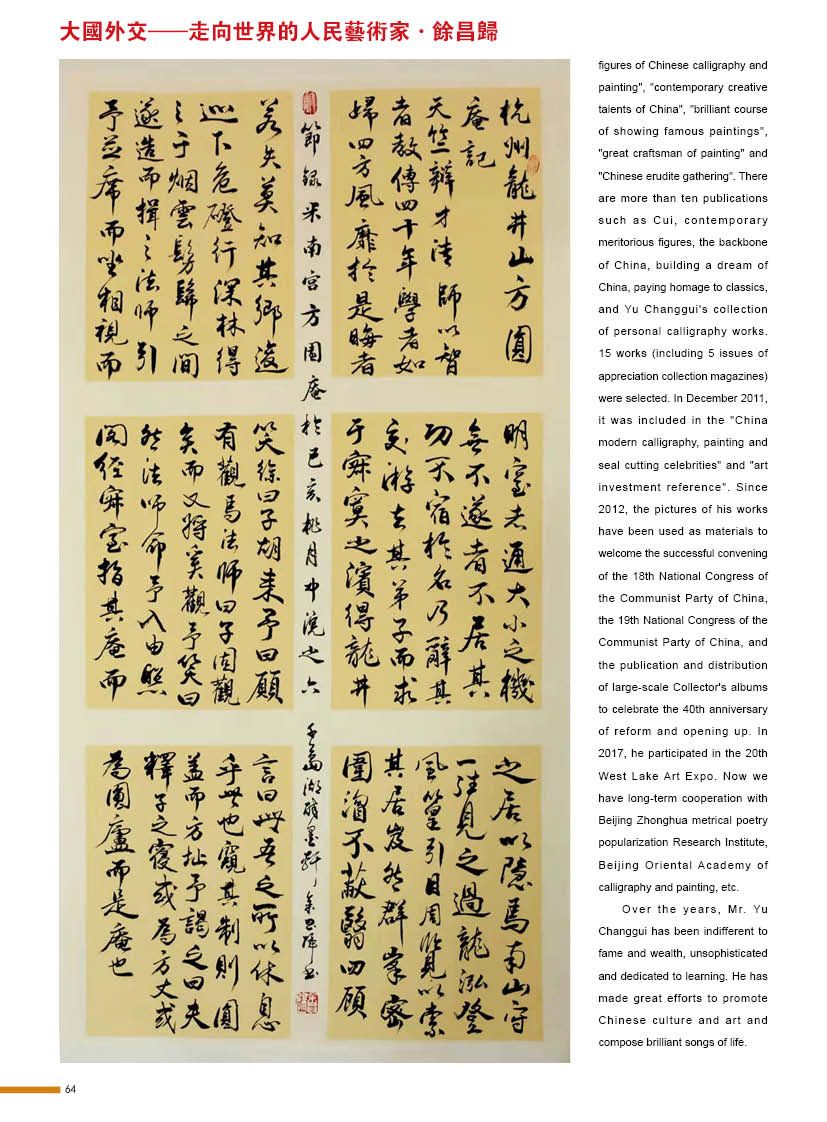 大國外交——走向世界的人民藝術家·餘昌歸
杭州龍井山方圓
庵記
天竺辯才法師以智
者教傳四十年學者如
婦四方風靡於是晦者
明室者通大小之機
無不遂者不居其
功不宿於名乃辭其
交游去其弟子而求
于寂寞之濱得龍井
之居以隱焉南山守
一往見之過龍泓登
風篁引目周覽以索
其居岌然群峯密
圍澑不蔽翳四顧
節録米南宫方圓庵於己亥桃月中浣之六
千島湖
若失莫知其鄉逡
巡下危磴行深林得
之于烟雲髣髴之間
遂造而揖之法師引
予並席而坐相視而
笑徐曰子胡来予曰願
有觀焉法師曰子固觀
矣而又将奚觀予笑曰
然法師命予入由照
閣經寂室指其庵而
言曰此吾之所以休息
乎此也窺其制則圓
盖而方址予謁之曰夫
釋子之寝或為方丈或
為圓廬而是庵也
figures of Chinese calligraphy and
painting", "contemporary creative
talents of China", "brilliant course
of showing famous paintings",
"great craftsman of painting" and
"Chinese erudite gathering". There
are more than ten publications
such as Cui, contemporary
meritorious figures, the backbone
of China, building a dream of
China, paying homage to classics,
and Yu Changgui's collection
of personal calligraphy works.
15 works (including 5 issues of
appreciation collection magazines)
were selected. In December 2011,
it was included in the "China
modern calligraphy, painting and
seal cutting celebrities" and "art
investment reference". Since
2012, the pictures of his works
have been used as materials to
welcome the successful convening
of the 18th National Congress of
the Communist Party of China,
the 19th National Congress of the
Communist Party of China, and
the publication and distribution
of large-scale Collector's albums
to celebrate the 40th anniversary
of reform and opening up. In
2017, he participated in the 20th
West Lake Art Expo. Now we
have long-term cooperation with
Beijing Zhonghua metrical poetry
popularization Research Institute,
Beijing Oriental Academy of
calligraphy and painting, etc.
Over the years, Mr. Yu
Changgui has been indifferent to
fame and wealth, unsophisticated
and dedicated to learning. He has
made great efforts to promote
Chinese culture and art and
compose brilliant songs of life.
64